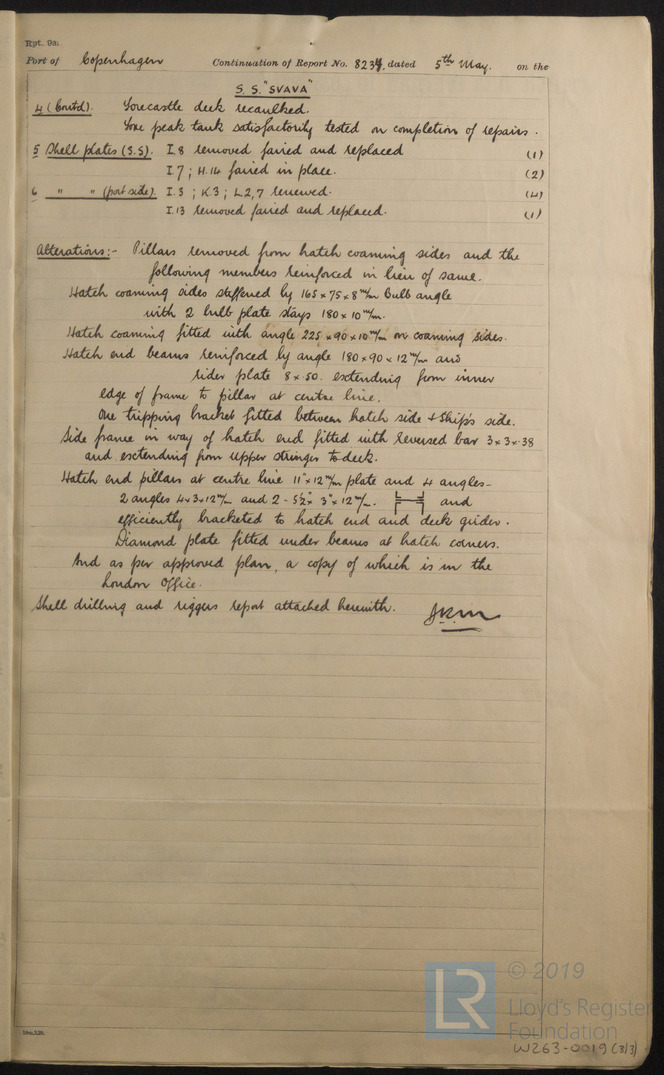 Rpt. 9a.
Port of Copenhagen Continuation of Report No. 8234, dated 5th May. on the
S.S. "SVAVA"
4 (Contd). Forecastle deck recaulked.
Fore peak tank satisfactorily tested on completion of repairs.
5 Shell plates (S.S). I.8 removed faired and replaced (1)
I 7 ; H.14 faired in place. (2)
6 " " (port side). I.3 ; K3 ; L2,7 renewed. (4)
I.13 removed faired and replaced. (1)
Alterations:- Pillars removed from hatch coaming sides and the
following members reinforced in lieu of same.
Hatch coaming sides stiffened by 165 x 75 x 8 m/m Bulb angle
with 2 bulb plate stays 180 x 10 m/m.
Hatch coaming fitted with angle 225 x 90 x 10 m/m on coaming sides.
Hatch end beams reinforced by angle 180 x 90 x 12 m/m and
rider plate 8 x 50. extending from inner
edge of frame to pillar at centre line.
One tripping bracket fitted between hatch side & Ship's side.
Side frame in way of hatch end fitted with reversed bar 3 x 3 x .38
and extending from upper stringer to deck.
Hatch end pillars at centre line 11" x 12 m/m plate and 4 angles -
2 angles 4 x 3 x 12 m/m and 2 - 5½" x 3" x 12 m/m. and
efficiently bracketed to hatch end and deck girder.
Diamond plate fitted under beams at hatch corners.
And as per approved plan, a copy of which is in the
London Office.
Shell drilling and riggers report attached herewith.
© 2019
LR
Lloyd's Register
Foundation
W263-0019 (3/3)